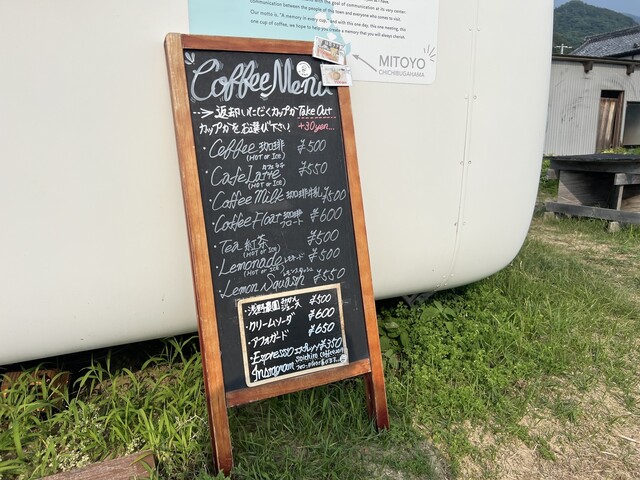 communication between the people of this town and everyone who comes to visit.
Our motto is, "A memory in every cup," and with this one day, this one meeting, this
one cup of coffee, we hope to help you make a memory that you will always cherish.
MITOYO
CHICHIBUGAHAMA
Coffee Menu
返却いただくカップか Take Out
カップかをお選び下さい +30yen...
・Coffee 珈琲 ¥500
(HOT or ICE)
・Cafe Latte カフェラテ ¥550
(HOT or ICE)
・Coffee Milk 珈琲牛乳 ¥500
・Coffee Float 珈琲フロート ¥600
・Tea 紅茶 ¥500
(HOT or ICE)
・Lemonade レモネード ¥500
(HOT or ICE)
・Lemon Squash レモンスカッシュ ¥550
・浅野農園 ジュース ¥500
・クリームソーダ ¥600
・アフォガード ¥650
・Espresso エスプレッソ ¥350
Instagram